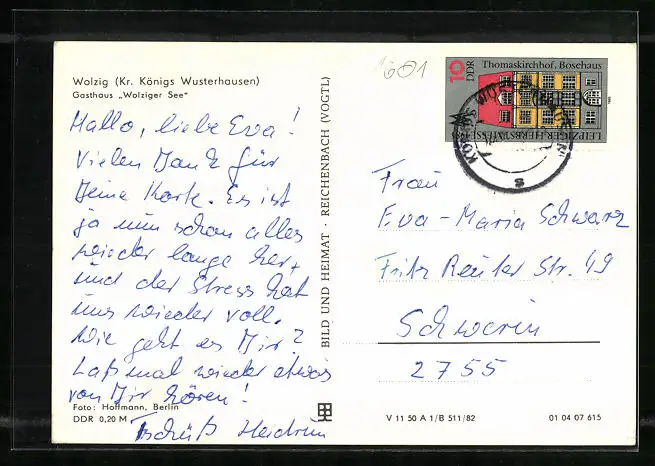 Wolzig (Kr. Königs Wusterhausen)
Gasthaus „Wolziger See“
Hallo, liebe Eva!
Vielen Dank für
Deine Karte. Es ist
ja nun schon alles
wieder lange her,
und der Stress hat
uns wieder voll.
Wie geht es Dir?
Laß mal wieder etwas
von Dir hören!
Tschüß Heidrun
Foto: Hoffmann, Berlin
DDR 0,20 M
BILD UND HEIMAT · REICHENBACH (VOGTL)
1601
10
DDR
Thomaskirchhof, Bosehaus
LEIPZIGER HERBSTMESSE 1985
Frau
Eva-Maria Schwarz
Fritz Reuter Str. 49
Schwerin
2755
V 11 50 A 1/B 511/82
01 04 07 615